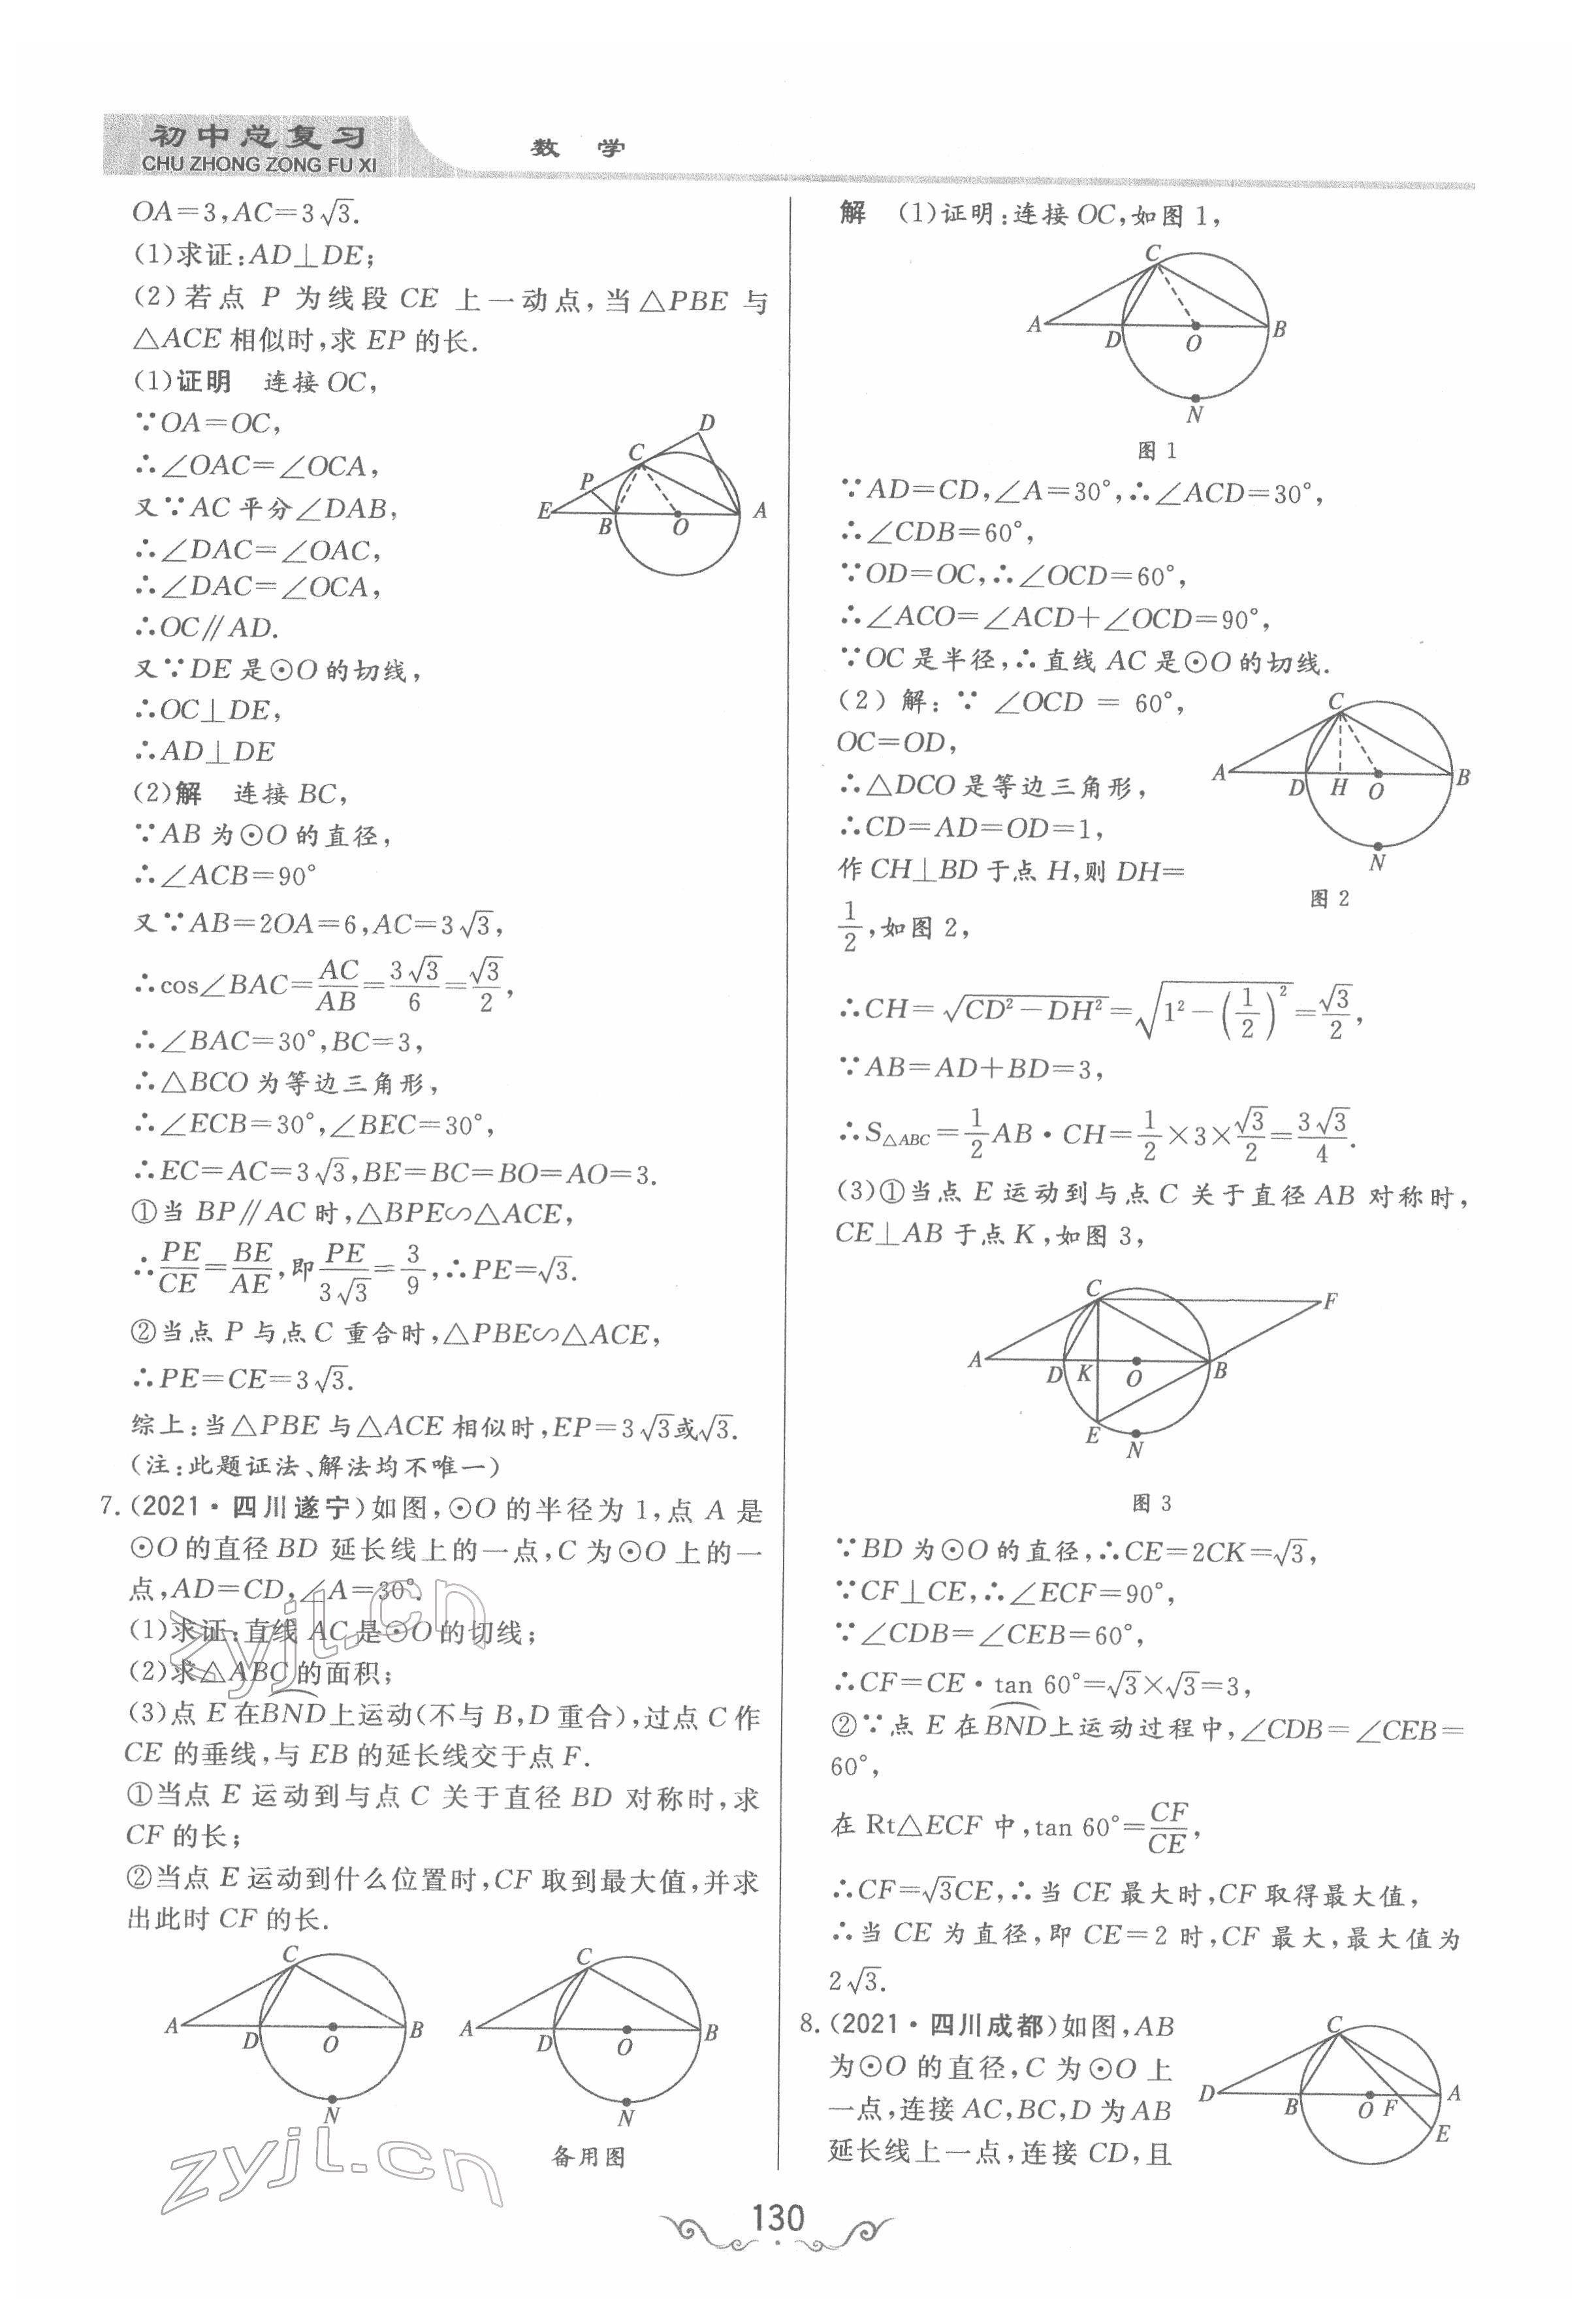 初中总复习
CHU ZHONG ZONG FU XI
数 学
OA=3,AC=3√3.
(1)求证:AD⊥DE;
(2)若点 P 为线段 CE 上一动点,当△PBE 与
△ACE 相似时,求 EP 的长.
(1)证明 连接 OC,
∵OA=OC,
∴∠OAC=∠OCA,
又∵AC 平分∠DAB,
∴∠DAC=∠OAC,
∴∠DAC=∠OCA,
∴OC∥AD.
又∵DE 是⊙O 的切线,
∴OC⊥DE,
∴AD⊥DE
D
C
P
E
B
O
A
(2)解 连接 BC,
∵AB 为⊙O 的直径,
∴∠ACB=90°
又∵AB=2OA=6,AC=3√3,
∴cos∠BAC=AC/AB=3√3/6=√3/2,
∴∠BAC=30°,BC=3,
∴△BCO 为等边三角形,
∴∠ECB=30°,∠BEC=30°,
∴EC=AC=3√3,BE=BC=BO=AO=3.
①当 BP∥AC 时,△BPE∽△ACE,
∴PE/CE=BE/AE,即PE/3√3=3/9,∴PE=√3.
②当点 P 与点 C 重合时,△PBE∽△ACE,
∴PE=CE=3√3.
综上:当△PBE 与△ACE 相似时,EP=3√3或√3.
(注:此题证法、解法均不唯一)
7.(2021·四川遂宁)如图,⊙O 的半径为 1,点 A 是
⊙O 的直径 BD 延长线上的一点,C 为⊙O 上的一
点,AD=CD,∠A=30°.
(1)求证:直线 AC 是⊙O 的切线;
(2)求△ABC 的面积;
(3)点 E 在BND上运动(不与 B,D 重合),过点 C 作
CE 的垂线,与 EB 的延长线交于点 F.
①当点 E 运动到与点 C 关于直径 BD 对称时,求
CF 的长;
②当点 E 运动到什么位置时,CF 取到最大值,并求
出此时 CF 的长.
C
A
D
O
B
N
C
A
D
O
B
N
备用图
解 (1)证明:连接 OC,如图 1,
C
A
D
O
B
N
图 1
∵AD=CD,∠A=30°,∴∠ACD=30°,
∴∠CDB=60°,
∵OD=OC,∴∠OCD=60°,
∴∠ACO=∠ACD+∠OCD=90°,
∵OC 是半径,∴直线 AC 是⊙O 的切线.
(2)解:∵∠OCD = 60°,
OC=OD,
∴△DCO 是等边三角形,
∴CD=AD=OD=1,
作 CH⊥BD 于点 H,则 DH=
1/2,如图 2,
C
A
D
H
O
B
N
图 2
∴CH=√(CD²-DH²)=√(1²-(1/2)²)=√3/2,
∵AB=AD+BD=3,
∴S△ABC=1/2AB·CH=1/2×3×√3/2=3√3/4.
(3)①当点 E 运动到与点 C 关于直径 AB 对称时,
CE⊥AB 于点 K,如图 3,
C
F
A
D
K
O
B
E
N
图 3
∵BD 为⊙O 的直径,∴CE=2CK=√3,
∵CF⊥CE,∴∠ECF=90°,
∵∠CDB=∠CEB=60°,
∴CF=CE·tan 60°=√3×√3=3,
②∵点 E 在BND上运动过程中,∠CDB=∠CEB=
60°,
在 Rt△ECF 中,tan 60°=CF/CE,
∴CF=√3CE,∴当 CE 最大时,CF 取得最大值,
∴当 CE 为直径,即 CE=2 时,CF 最大,最大值为
2√3.
8.(2021·四川成都)如图,AB
为⊙O 的直径,C 为⊙O 上
一点,连接 AC,BC,D 为 AB
延长线上一点,连接 CD,且
C
D
B
O
F
A
E
zyjl.cn
zyjl.cn
130